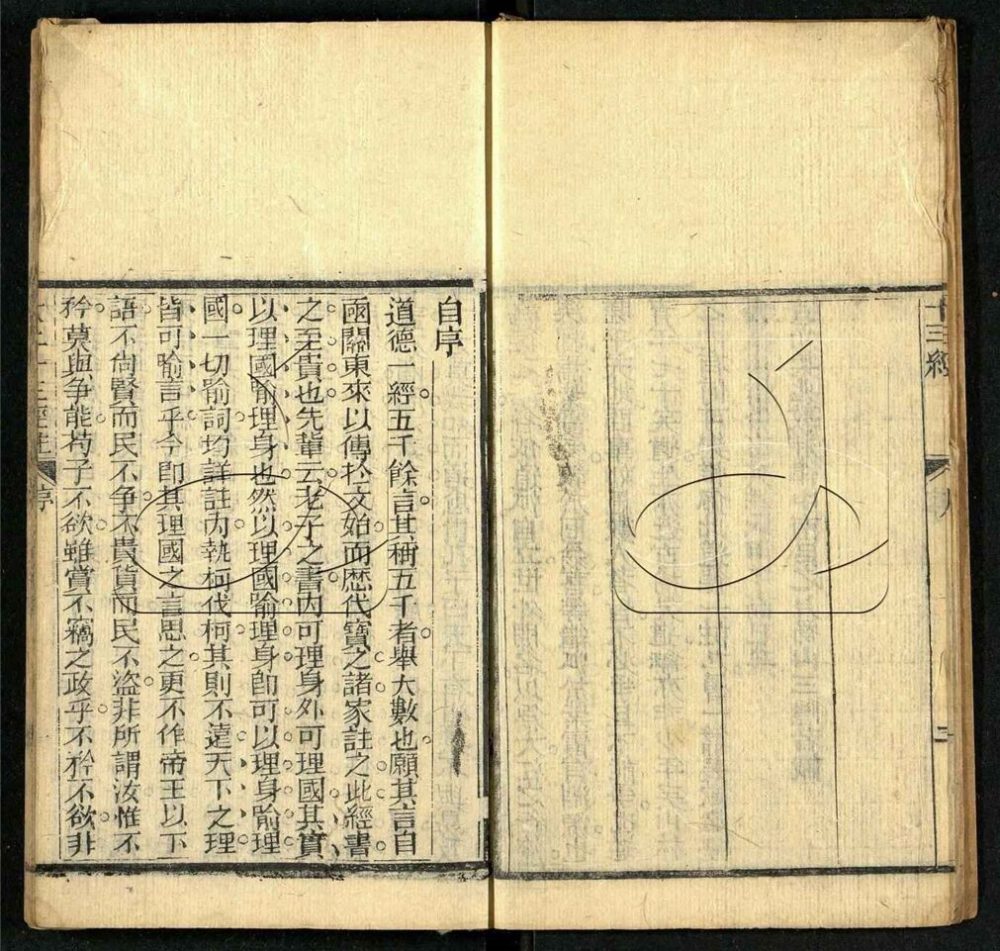 十三經
二
自序
道德一經五千餘言其稱五千者舉大數也願其言自
函關東來以傳於文始而歷代寶之諸家註之此經書
之至貴也先輩云老子之書內可理身外可理國其實
以理國喻理身也然以理國喻理身卽可以理身喻理
國一切喻詞均詳註內執柯伐柯其則不遠天下之理
皆可喻言乎今卽其理國之言思之更不作帝王以下
語不尙賢而民不爭不貴貨而民不盜非所謂汝惟不
矜莫與爭能苟子不欲雖賞不竊之政乎不矜不欲非
序